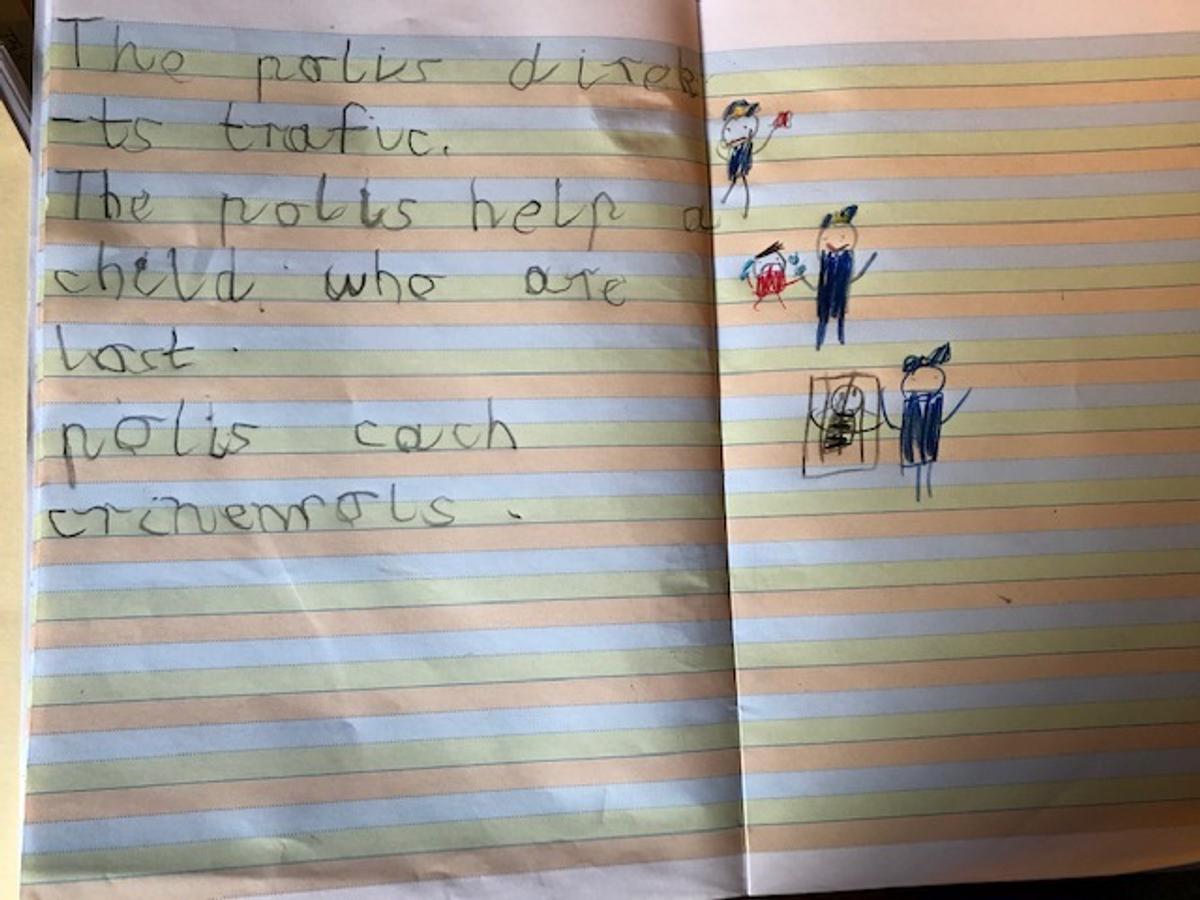 The polis direk
-ts trafic.
The polis help a
child who are
lost.
polis cach
crinemrols.